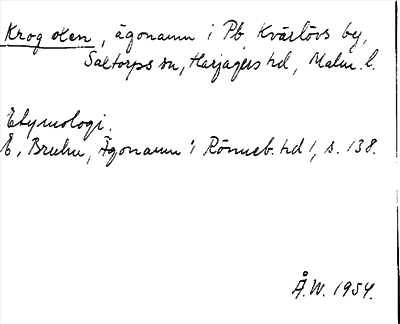 Krog oken, ägonamn i Pb, Kvärlövs by,
Saxtorps sn, Harjagers hd, Malm. l.
Etymologi.
E. Bruhn, Ägonamn i Rönneb. hd 1, s. 138.
Å.W. 1954.